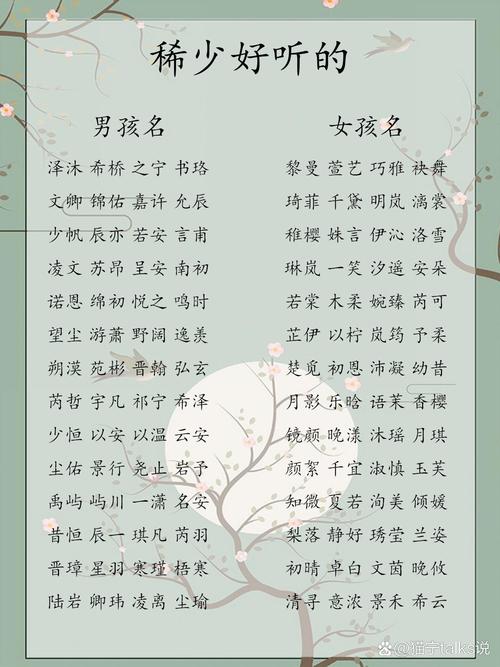 稀少好听的
男孩名
泽沐 希桥 之宁 书珞
文卿 锦佑 嘉许 允辰
少帆 辰亦 若安 言甫
凌文 苏昂 呈安 南初
诺恩 绵初 悦之 鸣时
望尘 游萧 野阔 逸羡
朔漠 苑彬 晋翰 弘玄
芮哲 宇凡 祁宁 希泽
少恒 以安 以温 云安
尘佑 景行 尧止 岩予
禹屿 屿川 一潇 名安
昔恒 辰一 琪凡 芮羽
晋璋 星羽 寒瑾 梧寒
陆岩 卿玮 凌离 尘瑜
女孩名
黎曼 萱艺 巧雅 袂舞
琦菲 千黛 明岚 漓裳
稚樱 姝言 伊沁 洛雪
琳岚 一笑 汐遥 安朵
若棠 木柔 婉臻 芮可
芷伊 以柠 岚筠 予柔
楚觅 初恩 沛凝 幼昔
月影 乐晗 语茉 香樱
镜颜 晚漾 沐瑶 月琪
颜絮 千宜 淑慎 玉芙
知微 夏若 洵美 倾媛
梨落 静好 琇莹 兰姿
初晴 卓白 文茵 晚攸
清寻 意浓 景禾 希云
@猫宇talks说